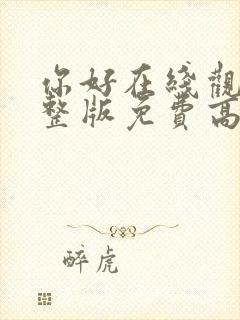 你好在綫觀
整版免費高
醉虎